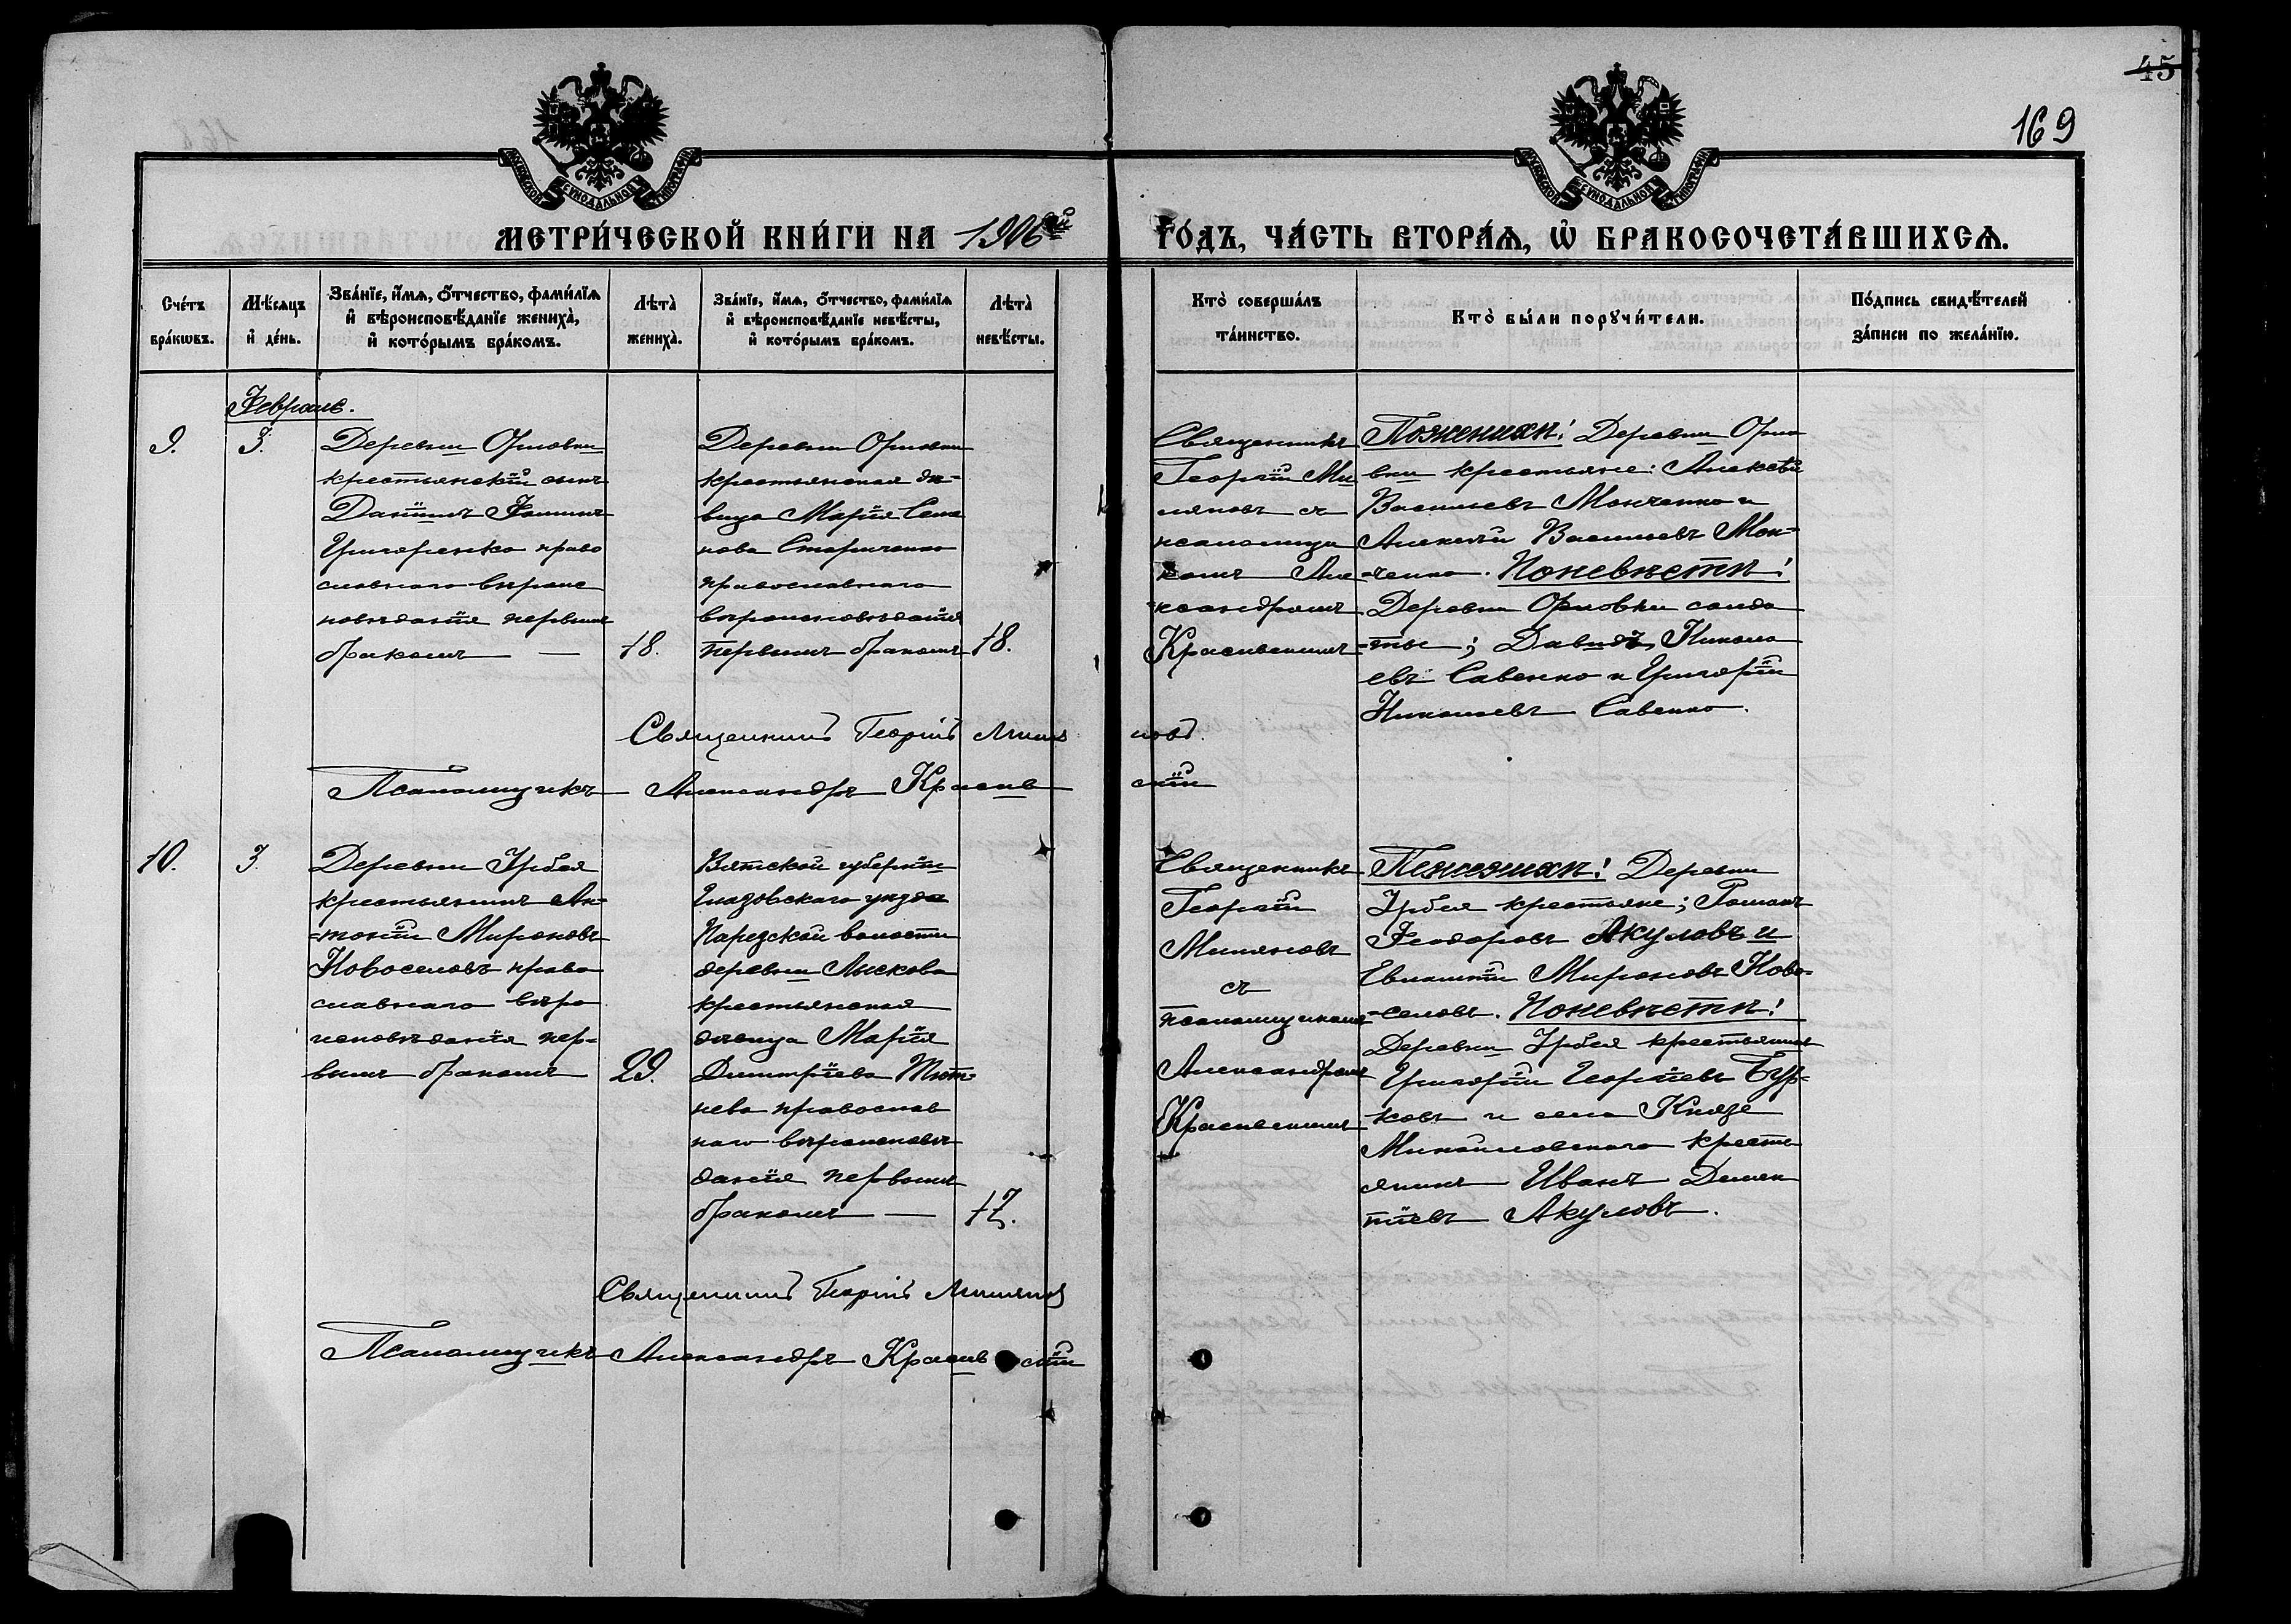 45
169
МОСКОВСКОЙ СѴНОДАЛЬНОЙ ТИПОГРАФІИ
МОСКОВСКОЙ СѴНОДАЛЬНОЙ ТИПОГРАФІИ
МЕТРИ́ЧЕСКОЙ КНИ́ГИ НА 1906ый ГО́ДЪ, ЧА́СТЬ ВТОРА́Ѧ, Ѽ БРАКОСОЧЕТА́ВШИХСѦ.
Сче́тъ
бра́кѡвъ.
Мѣ́сѧцъ
и҆ де́нь.
Зва́нїе, и҆́мѧ, ѻ҆́тчество, фами́лїѧ
и҆ вѣроисповѣ́данїе жениха̀,
и҆ кото́рымъ бра́комъ.
Лѣта̀
жениха̀.
Зва́нїе, и҆́мѧ, ѻ҆́тчество, фами́лїѧ
и҆ вѣроисповѣ́данїе невѣ́сты,
и҆ кото́рымъ бра́комъ.
Лѣта̀
невѣ́сты.
Кто̀ соверша́лъ
та́инство.
Кто̀ бы́ли порꙋчи́тели.
По́дпись свидѣ́телей
за́писи по жела́нїю.
Февраль.
9.
3.
Деревни Орловки
крестьянскій сынъ
Даніилъ Фоминъ
Григоренко право
славнаго вѣроис
повѣданія первымъ
бракомъ —
18.
Деревни Орловки
крестьянская дѣ-
вица Марія Семе
нова Старченко
православнаго
вѣроисповѣданія
первымъ бракомъ
18.
Священникъ
Георгій Ми
ляновъ съ
псаломщи
комъ Але
-ксандромъ
Красивскимъ
Поженихѣ! Деревни Орло
вки крестьяне: Алексѣй
Васильевъ Мокченко и
Алексѣй Васильевъ Мок-
-ченко. Поневѣстѣ!
Деревни Орловки солда
-ты; Давидъ Никола
евъ Савенко и Григорій
Николаевъ Савенко.
Священникъ Георгій Миля новъ.
Псаломщикъ Александръ Красив скій
10.
3.
Деревни Ирбея
крестьянинъ Ан-
-тоній Мироновъ
Новоселовъ право
славнаго вѣро
исповѣданія пер-
вымъ бракомъ
29.
Вятской губерніи
Глазовскаго уѣзда
Парзской волости
деревни Лыскова
крестьянская
дѣвица Марія
Димитріева Тют-
нева православ
наго вѣроисповѣ
данія первымъ
бракомъ —
17.
Священникъ
Георгій
Миляновъ
съ
псаломщикомъ
Александромъ
Красивскимъ
Поженихѣ! Деревни
Ирбея крестьяне; Романъ
Феодоровъ Акуловъ и
Евлампій Мироновъ Ново-
-селовъ. Поневѣстѣ!
Деревни Ирбея крестьянинъ
Григорій Георгіевъ Бур-
ковъ и села Князе
Михайловскаго кресть
янинъ Иванъ Демен
тіевъ Акуловъ.
Священникъ Георгій Миляновъ
Псаломщикъ Александръ Красивскій